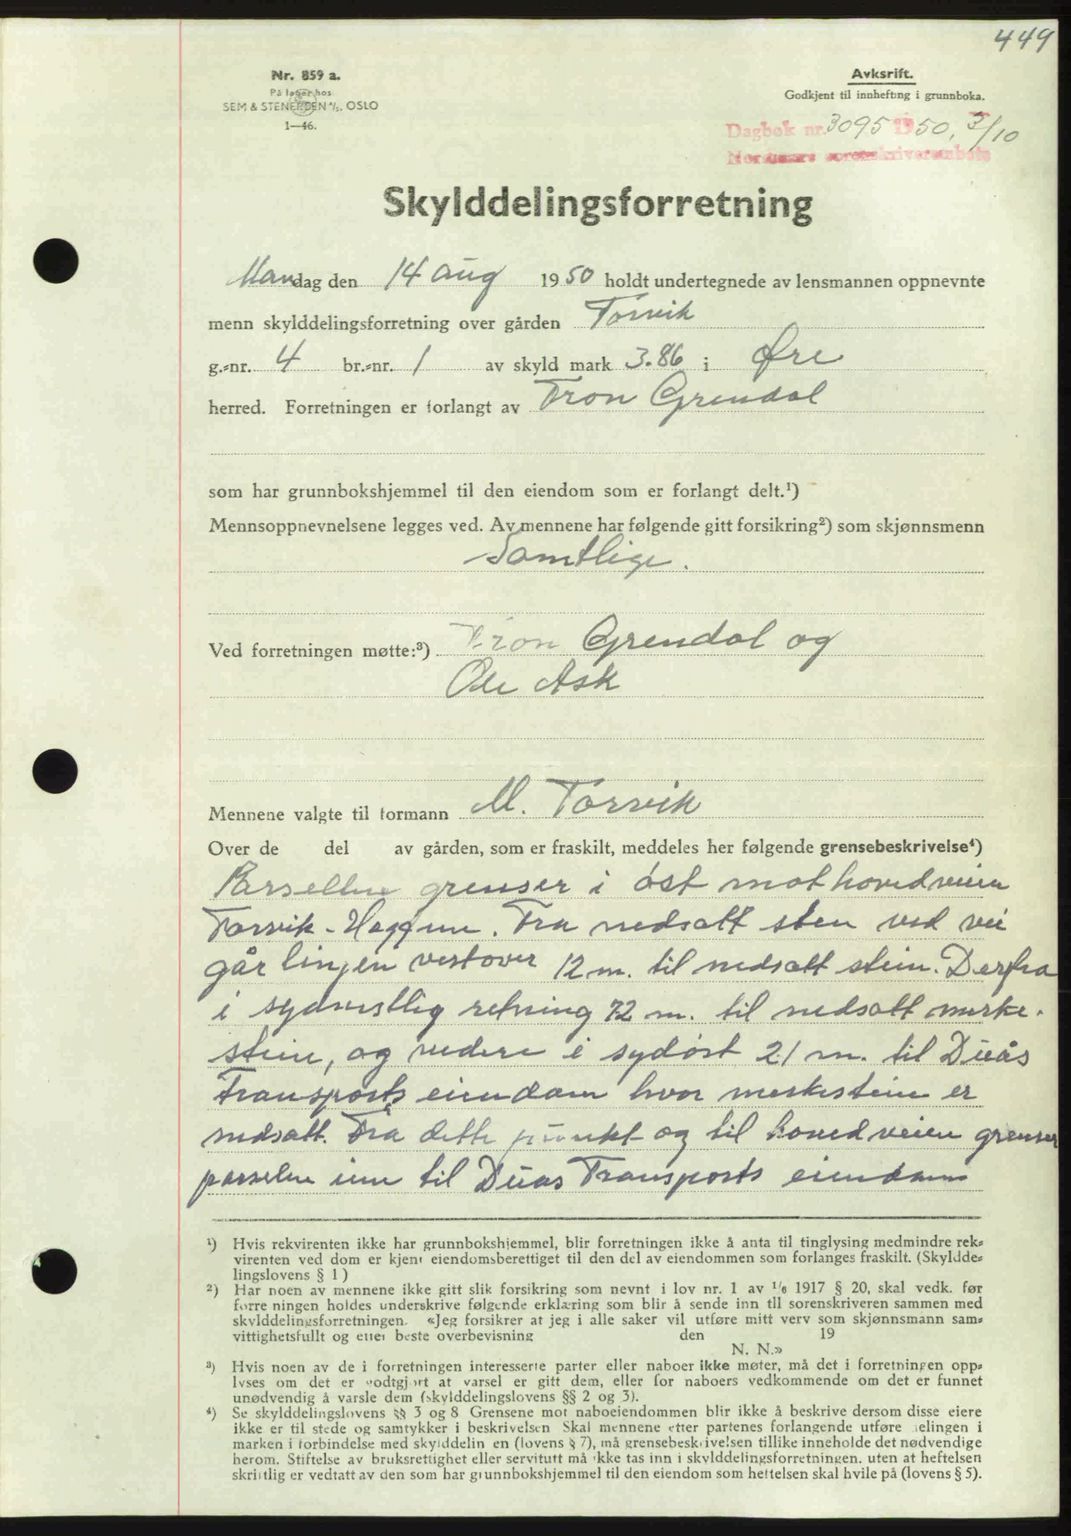 449
Nr. 859 a.
På lager hos
SEM & STENERSEN A/S, OSLO
1—46.
Avksrift.
Godkjent til innhefting i grunnboka.
Dagbok nr. 3095 1950, 3/10
Nordmøre sorenskriverembete
Skylddelingsforretning
Mandag den 14 aug 1950 holdt undertegnede av lensmannen oppnevnte
menn skylddelingsforretning over gården Torvik
g.-nr. 4 br.-nr. 1 av skyld mark 3.86 i Øre
herred. Forretningen er forlangt av Tron Grendal
som har grunnbokshjemmel til den eiendom som er forlangt delt.¹)
Mennsoppnevnelsene legges ved. Av mennene har følgende gitt forsikring²) som skjønnsmenn
Samtlige.
Ved forretningen møtte:³) Tron Grendal og
Ole Ask
Mennene valgte til formann M. Torvik
Over de del av gården, som er fraskilt, meddeles her følgende grensebeskrivelse⁴)
Parsellen grenser i øst mot hovedveien
Torvik - Høgset. Fra nedsatt sten ved vei
går linjen vestover 12 m. til nedsatt stein. Derfra
i sydvestlig retning 72 m. til nedsatt merke-
stein, og videre i sydøst 21 m. til Dúås
Transports eiendom hvor merkestein er
nedsatt. Fra dette punkt og til hovedveien grenser
parsellen inn til Dúås Transports eiendom
¹) Hvis rekvirenten ikke har grunnbokshjemmel, blir forretningen ikke å anta til tinglysing medmindre rek-
virenten ved dom er kjent eiendomsberettiget til den del av eiendommen som forlanges fraskilt. (Skyldde-
lingslovens § 1)
²) Har noen av mennene ikke gitt slik forsikring som nevnt i lov nr. 1 av 1/6 1917 § 20, skal vedk. før
forretningen holdes underskrive følgende erklæring som blir å sende inn til sorenskriveren sammen med
skylddelingsforretningen. «Jeg forsikrer at jeg i alle saker vil utføre mitt verv som skjønnsmann sam-
vittighetsfullt og etter beste overbevisning den 19
N. N.»
³) Hvis noen av de i forretningen interesserte parter eller naboer ikke møter, må det i forretningen opp-
lyses om det er godtgjort at varsel er gitt dem, eller for naboers vedkommende om det er funnet
unødvendig å varsle dem (skylddelingslovens §§ 2 og 3).
⁴) Se skylddelingslovens §§ 3 og 8 Grensene mot naboeiendommen blir ikke å beskrive dersom disse eiere
ikke er til stede og samtykker i beskrivelsen Skal mennene etter partenes forlangende utføre delingen i
marken i forbindelse med skylddelingen (lovens § 7), må grensebeskrivelsen tillike inneholde det nødvendige
herom. Stiftelse av bruksrettighet eller servitutt må ikke tas inn i skylddelingsforretningen. uten at heftelsen
skriftlig er vedtatt av den som har grunnbokshjemmel til den eiendom som heftelsen skal hvile på (lovens § 5).